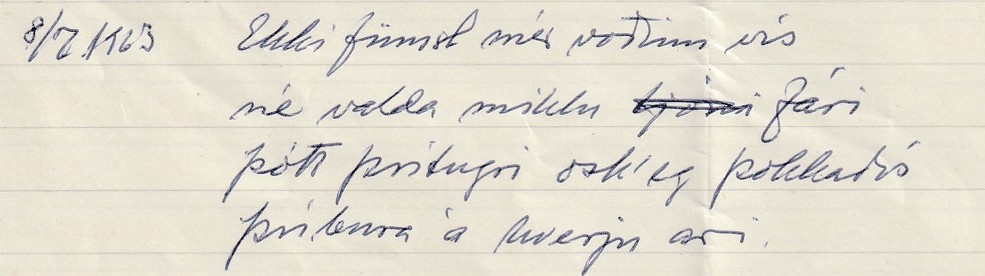 8/7 1963 Ekki finnst mér voðinn vís
né valda miklu tjóni fári
þótt þrítugri ósk' eg þokkadís
þríbura á hverju ári.